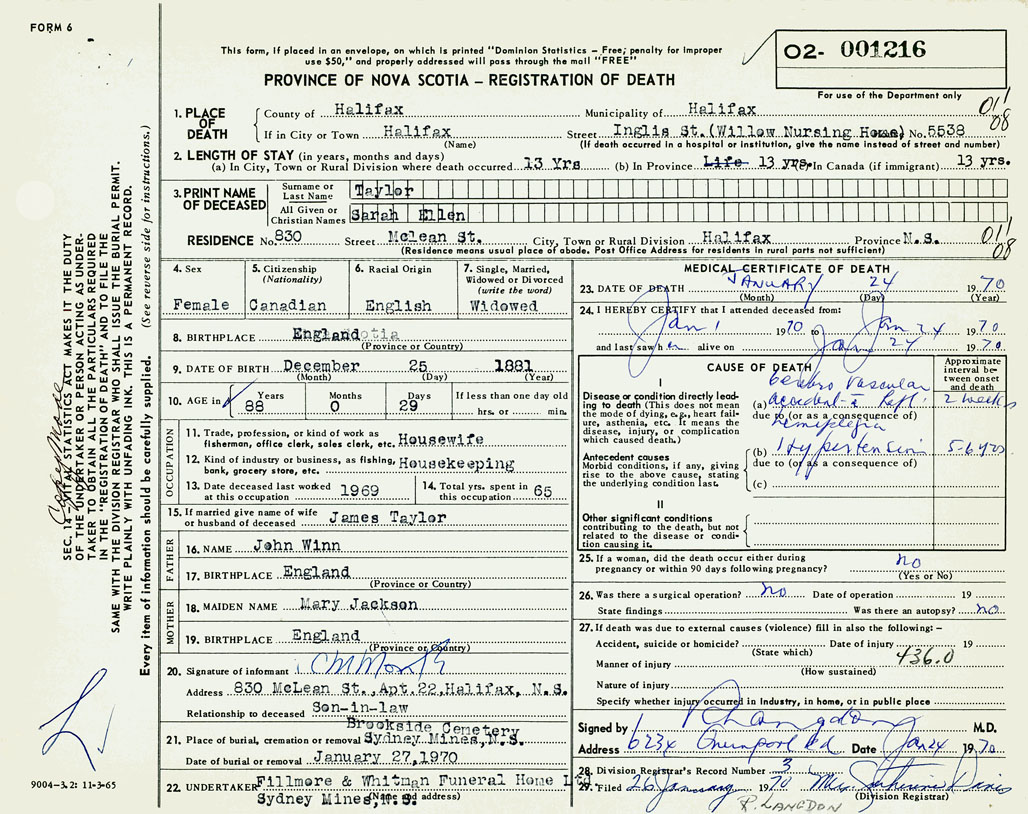 FORM 6
This form, if placed in an envelope, on which is printed "Dominion Statistics – Free; penalty for improper
use $50," and properly addressed will pass through the mail "FREE"
O2- 001216
PROVINCE OF NOVA SCOTIA – REGISTRATION OF DEATH
For use of the Department only
011
08
1. PLACE OF DEATH
County of Halifax Municipality of Halifax
If in City or Town Halifax Street Inglis St. (Willow Nursing Home) No. 5538
(Name) (If death occurred in a hospital or institution, give the name instead of street and number)
2. LENGTH OF STAY (in years, months and days)
(a) In City, Town or Rural Division where death occurred 13 Yrs (b) In Province Life 13 yrs. In Canada (if immigrant) 13 yrs.
3. PRINT NAME OF DECEASED
Surname or Last Name Taylor
All Given or Christian Names Sarah Ellen
RESIDENCE No. 830 Street Mclean St. City, Town or Rural Division Halifax Province N.S.
(Residence means usual place of abode. Post Office Address for residents in rural parts not sufficient)
011
08
4. Sex
Female
5. Citizenship
(Nationality)
Canadian
6. Racial Origin
English
7. Single, Married,
Widowed or Divorced
(write the word)
Widowed
8. BIRTHPLACE England otia
(Province or Country)
9. DATE OF BIRTH December 25 1881
(Month) (Day) (Year)
10. AGE in
Years Months Days If less than one day old
88 0 29 hrs. or min.
OCCUPATION
11. Trade, profession or kind of work as
fishing, office clerk, sales clerk, etc. Housewife
12. Kind of industry or business, as fishing,
bank, grocery store, etc. Housekeeping
13. Date deceased last worked
at this occupation 1969
14. Total yrs. spent in
this occupation 65
15. If married give name of wife
or husband of deceased James Taylor
FATHER
16. NAME John Winn
17. BIRTHPLACE England
(Province or Country)
MOTHER
18. MAIDEN NAME Mary Jackson
19. BIRTHPLACE England
(Province or Country)
20. Signature of informant
Address 830 McLean St., Apt.22, Halifax, N.S.
Relationship to deceased Son-in-law
Brookside Cemetery
21. Place of burial, cremation or removal Sydney Mines, N.S.
Date of burial or removal January 27, 1970
22. UNDERTAKER Fillmore & Whitman Funeral Home Ltd
Sydney Mines, N.S.
(Name and address)
MEDICAL CERTIFICATE OF DEATH
23. DATE OF DEATH JANUARY 24 1970
(Month) (Day) (Year)
24. I HEREBY CERTIFY that I attended deceased from:
Jan 1 1970 to Jan 24 1970
and last saw her alive on Jan 24 1970
CAUSE OF DEATH
Approximate
interval be-
tween onset
and death
I
Disease or condition directly lead-
ing to death (This does not mean
the mode of dying, e.g., heart fail-
ure, asthenia, etc. It means the
disease, injury, or complication
which caused death.)
Cerebro Vascular
(a) accident 2 weeks
due to (or as a consequence of)
hemiplegia
Antecedent causes
Morbid conditions, if any, giving
rise to the above cause, stating
the underlying condition last.
(b) Hypertension 5-6 yrs
due to (or as a consequence of)
(c)
II
Other significant conditions
contributing to the death, but not
related to the disease or condi-
tion causing it.
25. If a woman, did the death occur either during
pregnancy or within 90 days following pregnancy? no
(Yes or No)
26. Was there a surgical operation? no Date of operation 19
State findings Was there an autopsy? no
27. If death was due to external causes (violence) fill in also the following: –
Accident, suicide or homicide? Date of injury 19
(State which)
436.0
Manner of injury
(How sustained)
Nature of injury
Specify whether injury occurred in Industry, in home, or in public place
Signed by M.D.
Address Date Jan 24 1970
28. Division Registrar's Record Number 3
29. Filed 26 January 1970
(Division Registrar)
R. LANGDON
SEC. 14 – VITAL STATISTICS ACT MAKES IT THE DUTY
OF THE UNDERTAKER OR PERSON ACTING AS UNDER-
TAKER TO OBTAIN ALL THE PARTICULARS REQUIRED
IN THE "REGISTRATION OF DEATH" AND TO FILE THE
SAME WITH THE DIVISION REGISTRAR WHO SHALL ISSUE THE BURIAL PERMIT.
WRITE PLAINLY WITH UNFADING INK. THIS IS A PERMANENT RECORD.
Every item of information should be carefully supplied. (See reverse side for instructions.)
9004–3.2: 11-3-65